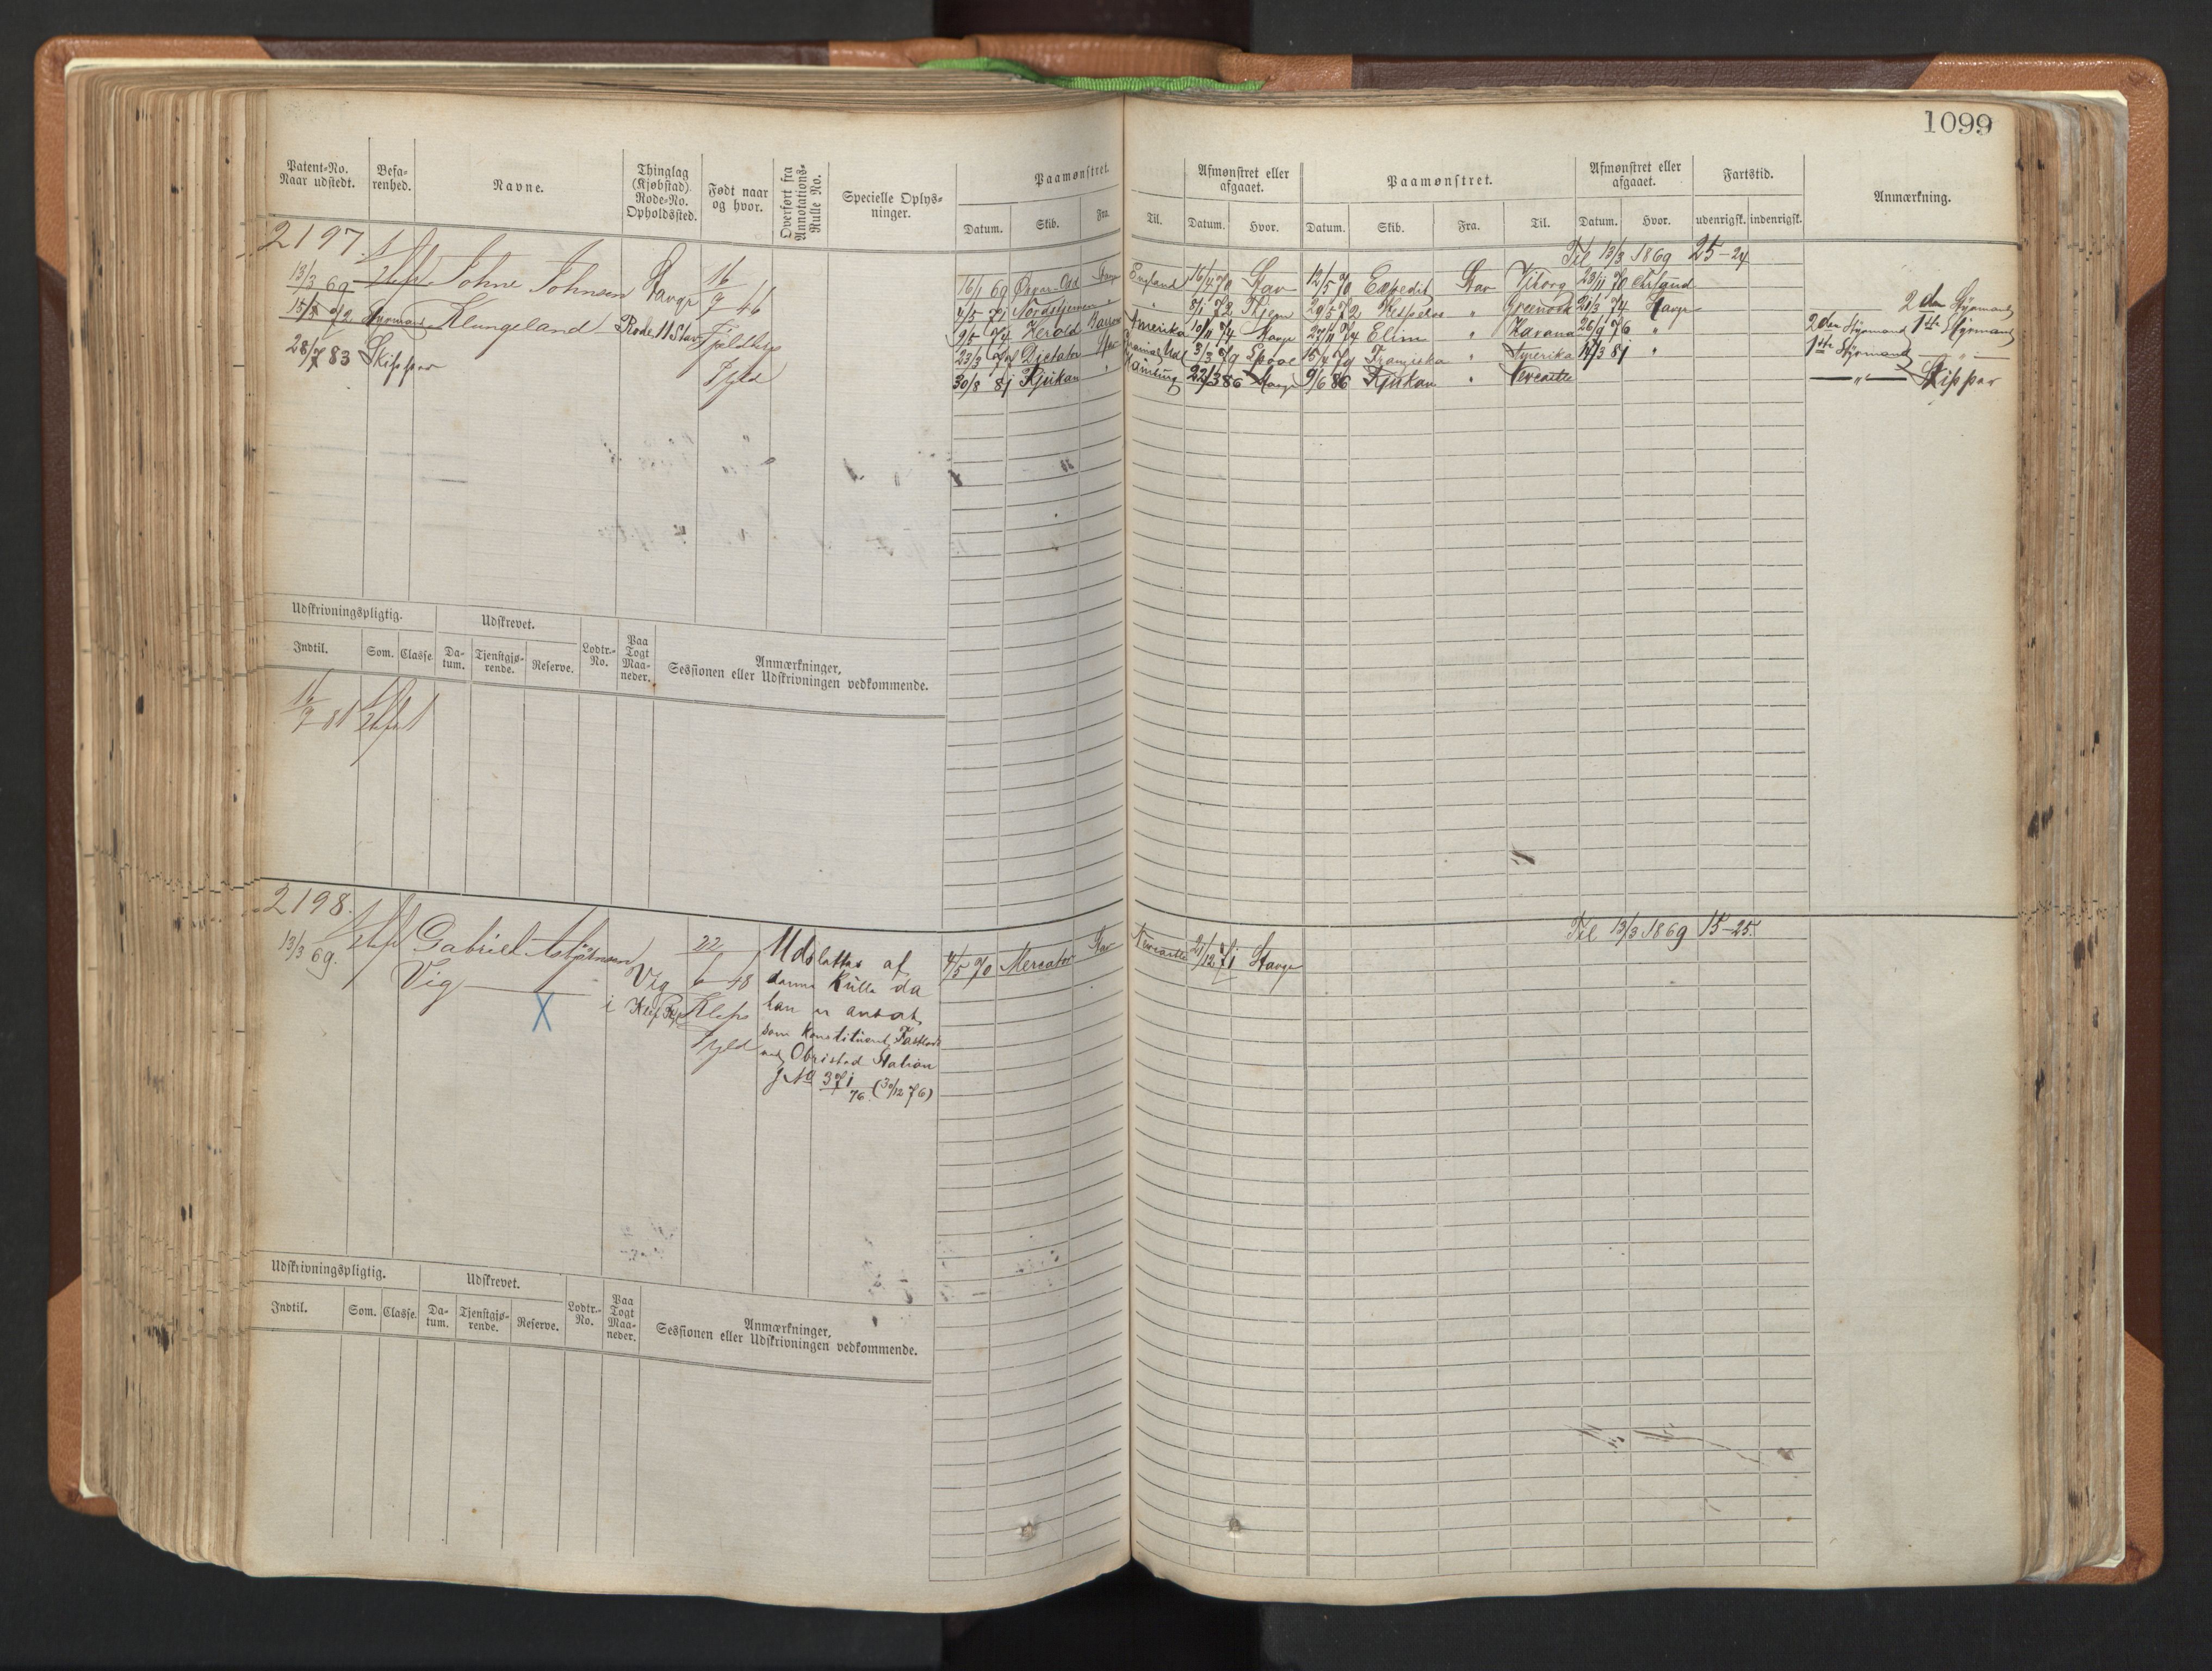 1099
Patent-No. Naar udstedt. Befarenhed. Navne. Thinglag (Kjøbstad) Rode-No. Opholdssted. Født naar og hvor. Overført fra Annotations-Rulle No. Specielle Oplysninger. Paamønstret. Afmønstret eller afgaaet. Paamønstret. Afmønstret eller afgaaet. Fartstid. Anmærkning.
Datum. Skib. Fra. Til. Datum. Hvor. Datum. Skib. Fra. Til. Datum. Hvor. udenrigsk. indenrigsk.
2197.
Til 13/3 1869 25-24
13/3 69 Johne Johnsen Stavgr 16/9 46
16/1 69 England 16/4 70 Stav 12/5 70 Expedit Stav Viborg 23/11 70 Chrsund
15/5 72 Styrmand Klungeland Rode 11 Stav
4/5 71 Nordstjernen " " 8/1 72 Hjem 29/5 72 Hesperus " Greenock 21/3 74 Stavgr 2den Styrmand
28/7 83 Skipper Jyld
9/5 74 Herold Barrow Amerika 10/11 74 Stavgr 27/11 74 Elim " Havana 26/9 76 " 2den Styrmand 1ste Styrmand
23/3 Dictator 3/3 79 15/4 79 Franziska " Amerika 14/3 81 " 1ste Styrmand — " —
30/8 81 Rjukan " Hamburg 22/3 86 Stavgr 9/6 86 Rjukan " Newcastle — " — Skipper
Udskrivningspligtig. Udskrevet. Lodtr.-No. Paa Togt Maaneder. Anmærkninger, Sessionen eller Udskrivningen vedkommende.
Indtil. Som. Classe. Datum. Tjenstgjørende. Reserve.
16/9 81
2198.
Til 13/3 1869 15-25.
13/3 69. Gabriel Asbjørnsen Vig 22/6 48 Udslettes af
4/5 70 Mercator Stav Newcastle 21/12 71 Stavgr
Vig i Klep Klep denne Rulle da
X
han er ansat
Jyld som konstitueret
ved Obristad Station
J No 371/76. (30/12 76)
Udskrivningspligtig. Udskrevet. Lodtr.-No. Paa Togt Maaneder. Anmærkninger, Sessionen eller Udskrivningen vedkommende.
Indtil. Som. Classe. Datum. Tjenstgjørende. Reserve.